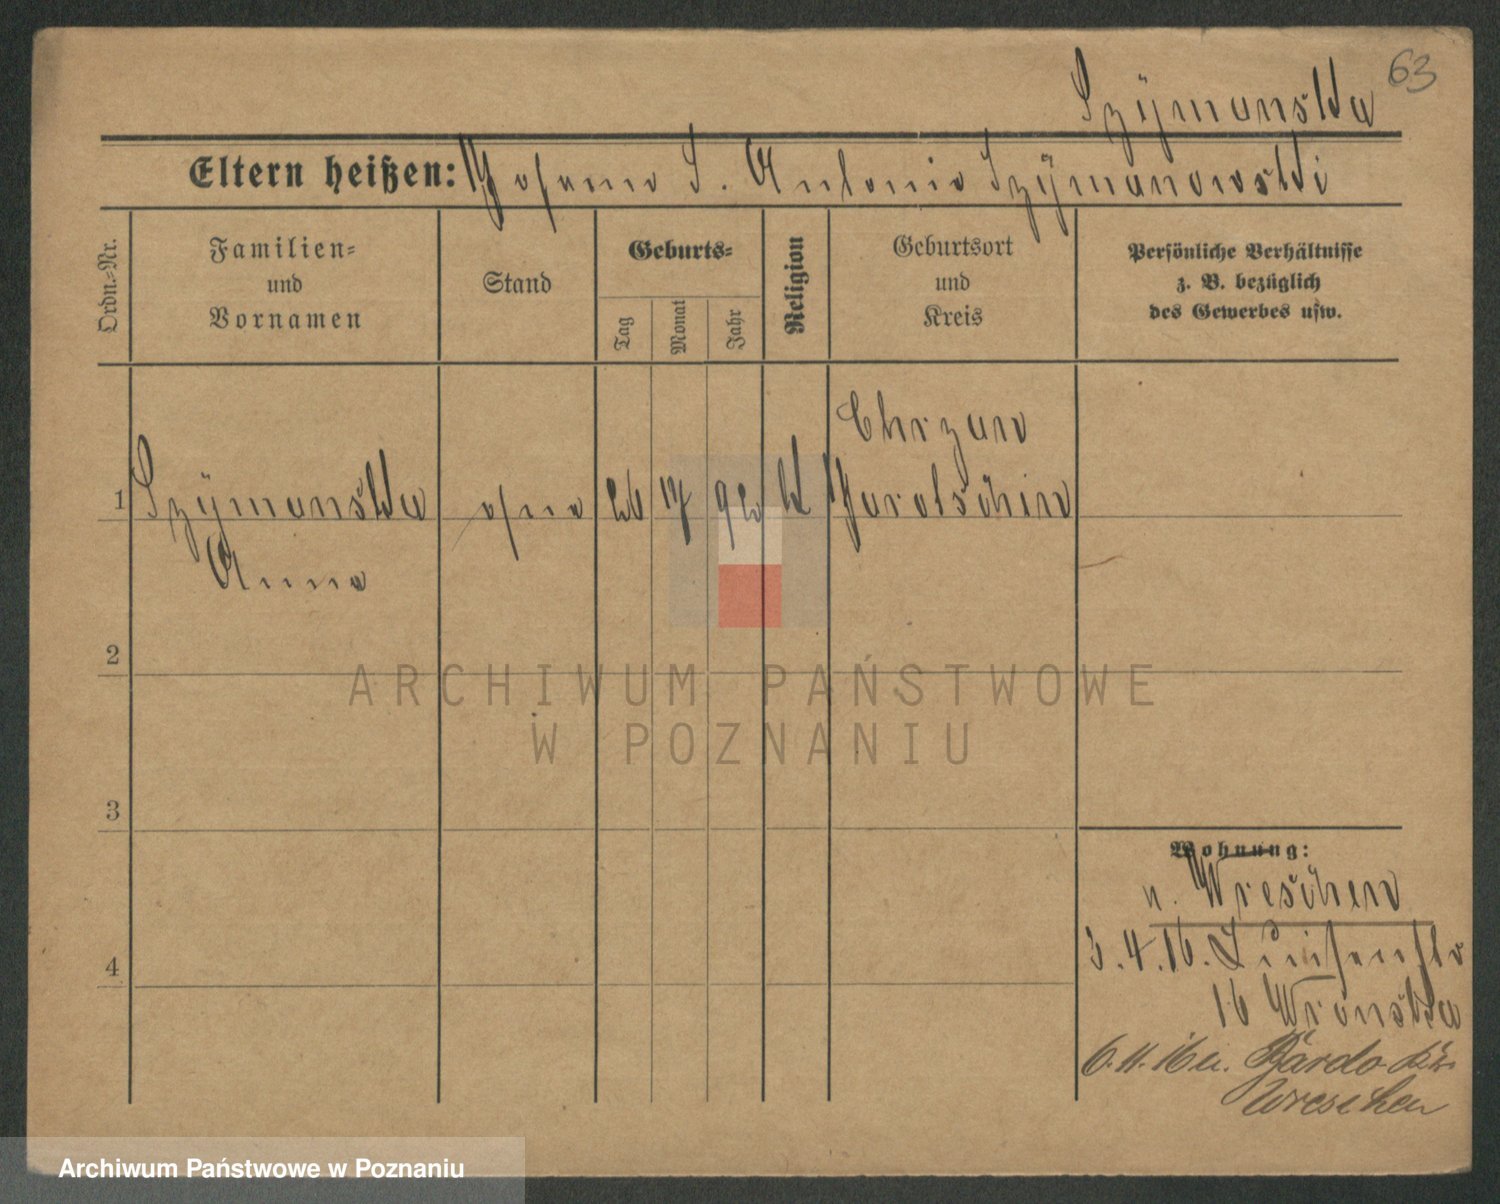 63
Szymanska
Eltern heißen: S. Antonie Szymanowski
Ordn.-Nr.
Familien-
und
Vornamen
Stand
Geburts-
Tag
Monat
Jahr
Religion
Geburtsort
und
Kreis
Persönliche Verhältnisse
z. B. bezüglich
des Gewerbes usw.
Chrzan
1 Szymanska 26 92 K Jarotschin
Anna
2
3
Wohnung:
n. Wreschen
3.4.16. Luisenstr
4
16 Wronska
6.11.16 n. Bardo Kr.
Wreschen
ARCHIWUM PAŃSTWOWE
W POZNANIU
Archiwum Państwowe w Poznaniu